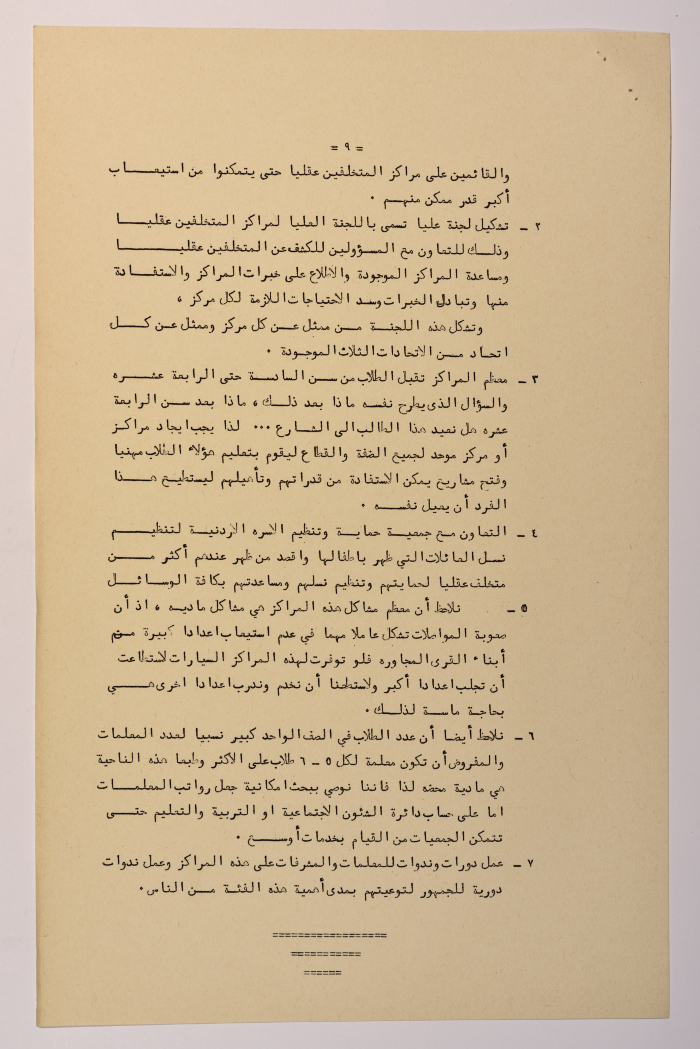 = ٩ =
والقائمين على مراكز المتخلفين عقليا حتى يتمكنوا من استيعـــــاب
أكبر قدر ممكن منهـــم ٠
٢ ـ تشكيل لجنة عليا تسمى باللجنة العليا لمراكز المتخلفين عقليـــا
وذلــك للتعاون مع المسؤولين للكشف عن المتخلفين عقليـــــــا
ومساعدة المراكز الموجودة والاطلاع على خبرات المراكز والاستفـــادة
منها وتبادل الخبرات وســد الاحتياجات اللازمة لكل مركز ،
وتشكل هذه اللجنــة مــن ممثل عــن كل مركز وممثل عن كـــل
اتحاد مــن الاتحادات الثلاث الموجـودة ٠
٣ ـ معظم المراكز تقبل الطلاب من ســن السادسة حتى الرابعة عشــره
والسؤال الذى يطرح نفسه ماذا بعد ذلــك ، ماذا بعد ســن الرابعة
عشره هل نعيد هذا الطالب الى الشارع ٠٠٠ لذا يجب ايجاد مراكــز
أو مركز موحد لجميع الضفة والقطاع ليقوم بتعليم هؤلاء الطلاب مهنيا
وفتح مشاريع يمكن الاستفادة من قدراتهم وتأهيلهم ليستطيــع هــــذا
الفرد أن يعيل نفســه ٠
٤ ـ التعاون مــع جمعيــة حماية وتنظيم الاسره الاردنيــة لتنظيـــم
نسل العائلات التي ظهر باطفالها واقصد من ظهر عندهم أكثر مــــن
متخلف عقليا لحمايتهم وتنظيم نسلهم ومساعدتهم بكافة الوسائـــل
٥ ـ نلاحظ أن معظم مشاكل هذه المراكز هي مشاكل ماديــه ، اذ أن
صعوبة المواصلات تشكل عاملا مهما في عدم استيعاب اعدادا كبيرة مــن
أبناء القرى المجاوره فلو توفرت لهذه المراكز السيارات لاستطاعت
أن تجلب اعدادا أكبر ولاستطعنا أن نخدم وندرب اعدادا اخرى هـــي
بحاجة ماسـة لذلـك ٠
٦ ـ نلاحظ أيضا أن عدد الطلاب في الصف الواحد كبير نسبيا لعدد المعلمات
والمفروض أن تكون معلمة لكل ٥ ـ ٦ طلاب على الأكثر وطبعا هذه الناحية
هي مادية محضه لذا فاننا نوصي ببحث امكانية جعل رواتب المعلمــات
اما على حساب دائرة الشئون الاجتماعية او التربية والتعليم حتـــى
تتمكن الجمعيات من القيام بخدمات أوســـع ٠
٧ ـ عمل دورات وندوات للمعلمات والمشرفات على هذه المراكز وعمل ندوات
دورية للجمهور لتوعيتهم بمدى أهمية هذه الفئـة مــن الناس ٠
==================
===========
======